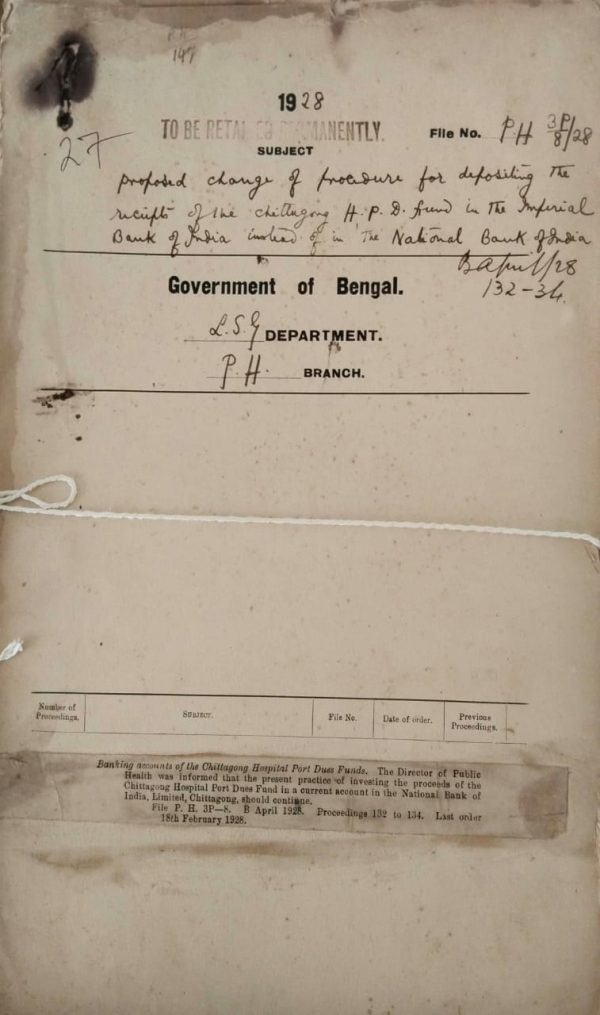 147
1928
TO BE RETAINED PERMANENTLY.
File No. PH 3P/8/28
27
SUBJECT
Proposed change of procedure for depositing the
reciepts of the Chittagong H.P.D. fund in the Imperial
Bank of India instead of in the National Bank of India
B April/28
132-34
Government of Bengal.
L.S.G DEPARTMENT.
P.H. BRANCH.
Number of Proceedings. SUBJECT. File No. Date of order. Previous Proceedings.
Banking accounts of the Chittagong Hospital Port Dues Funds. The Director of Public
Health was informed that the present practice of investing the proceeds of the
Chittagong Hospital Port Dues Fund in a current account in the National Bank of
India, Limited, Chittagong, should continue.
File P. H. 3P—8. B April 1928. Proceedings 132 to 134. Last order
18th February 1928.